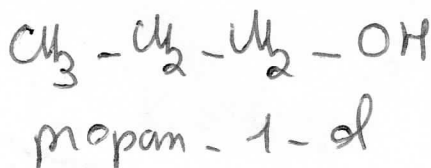 CH₃ - CH₂ - CH₂ - OH
propan - 1 - ol